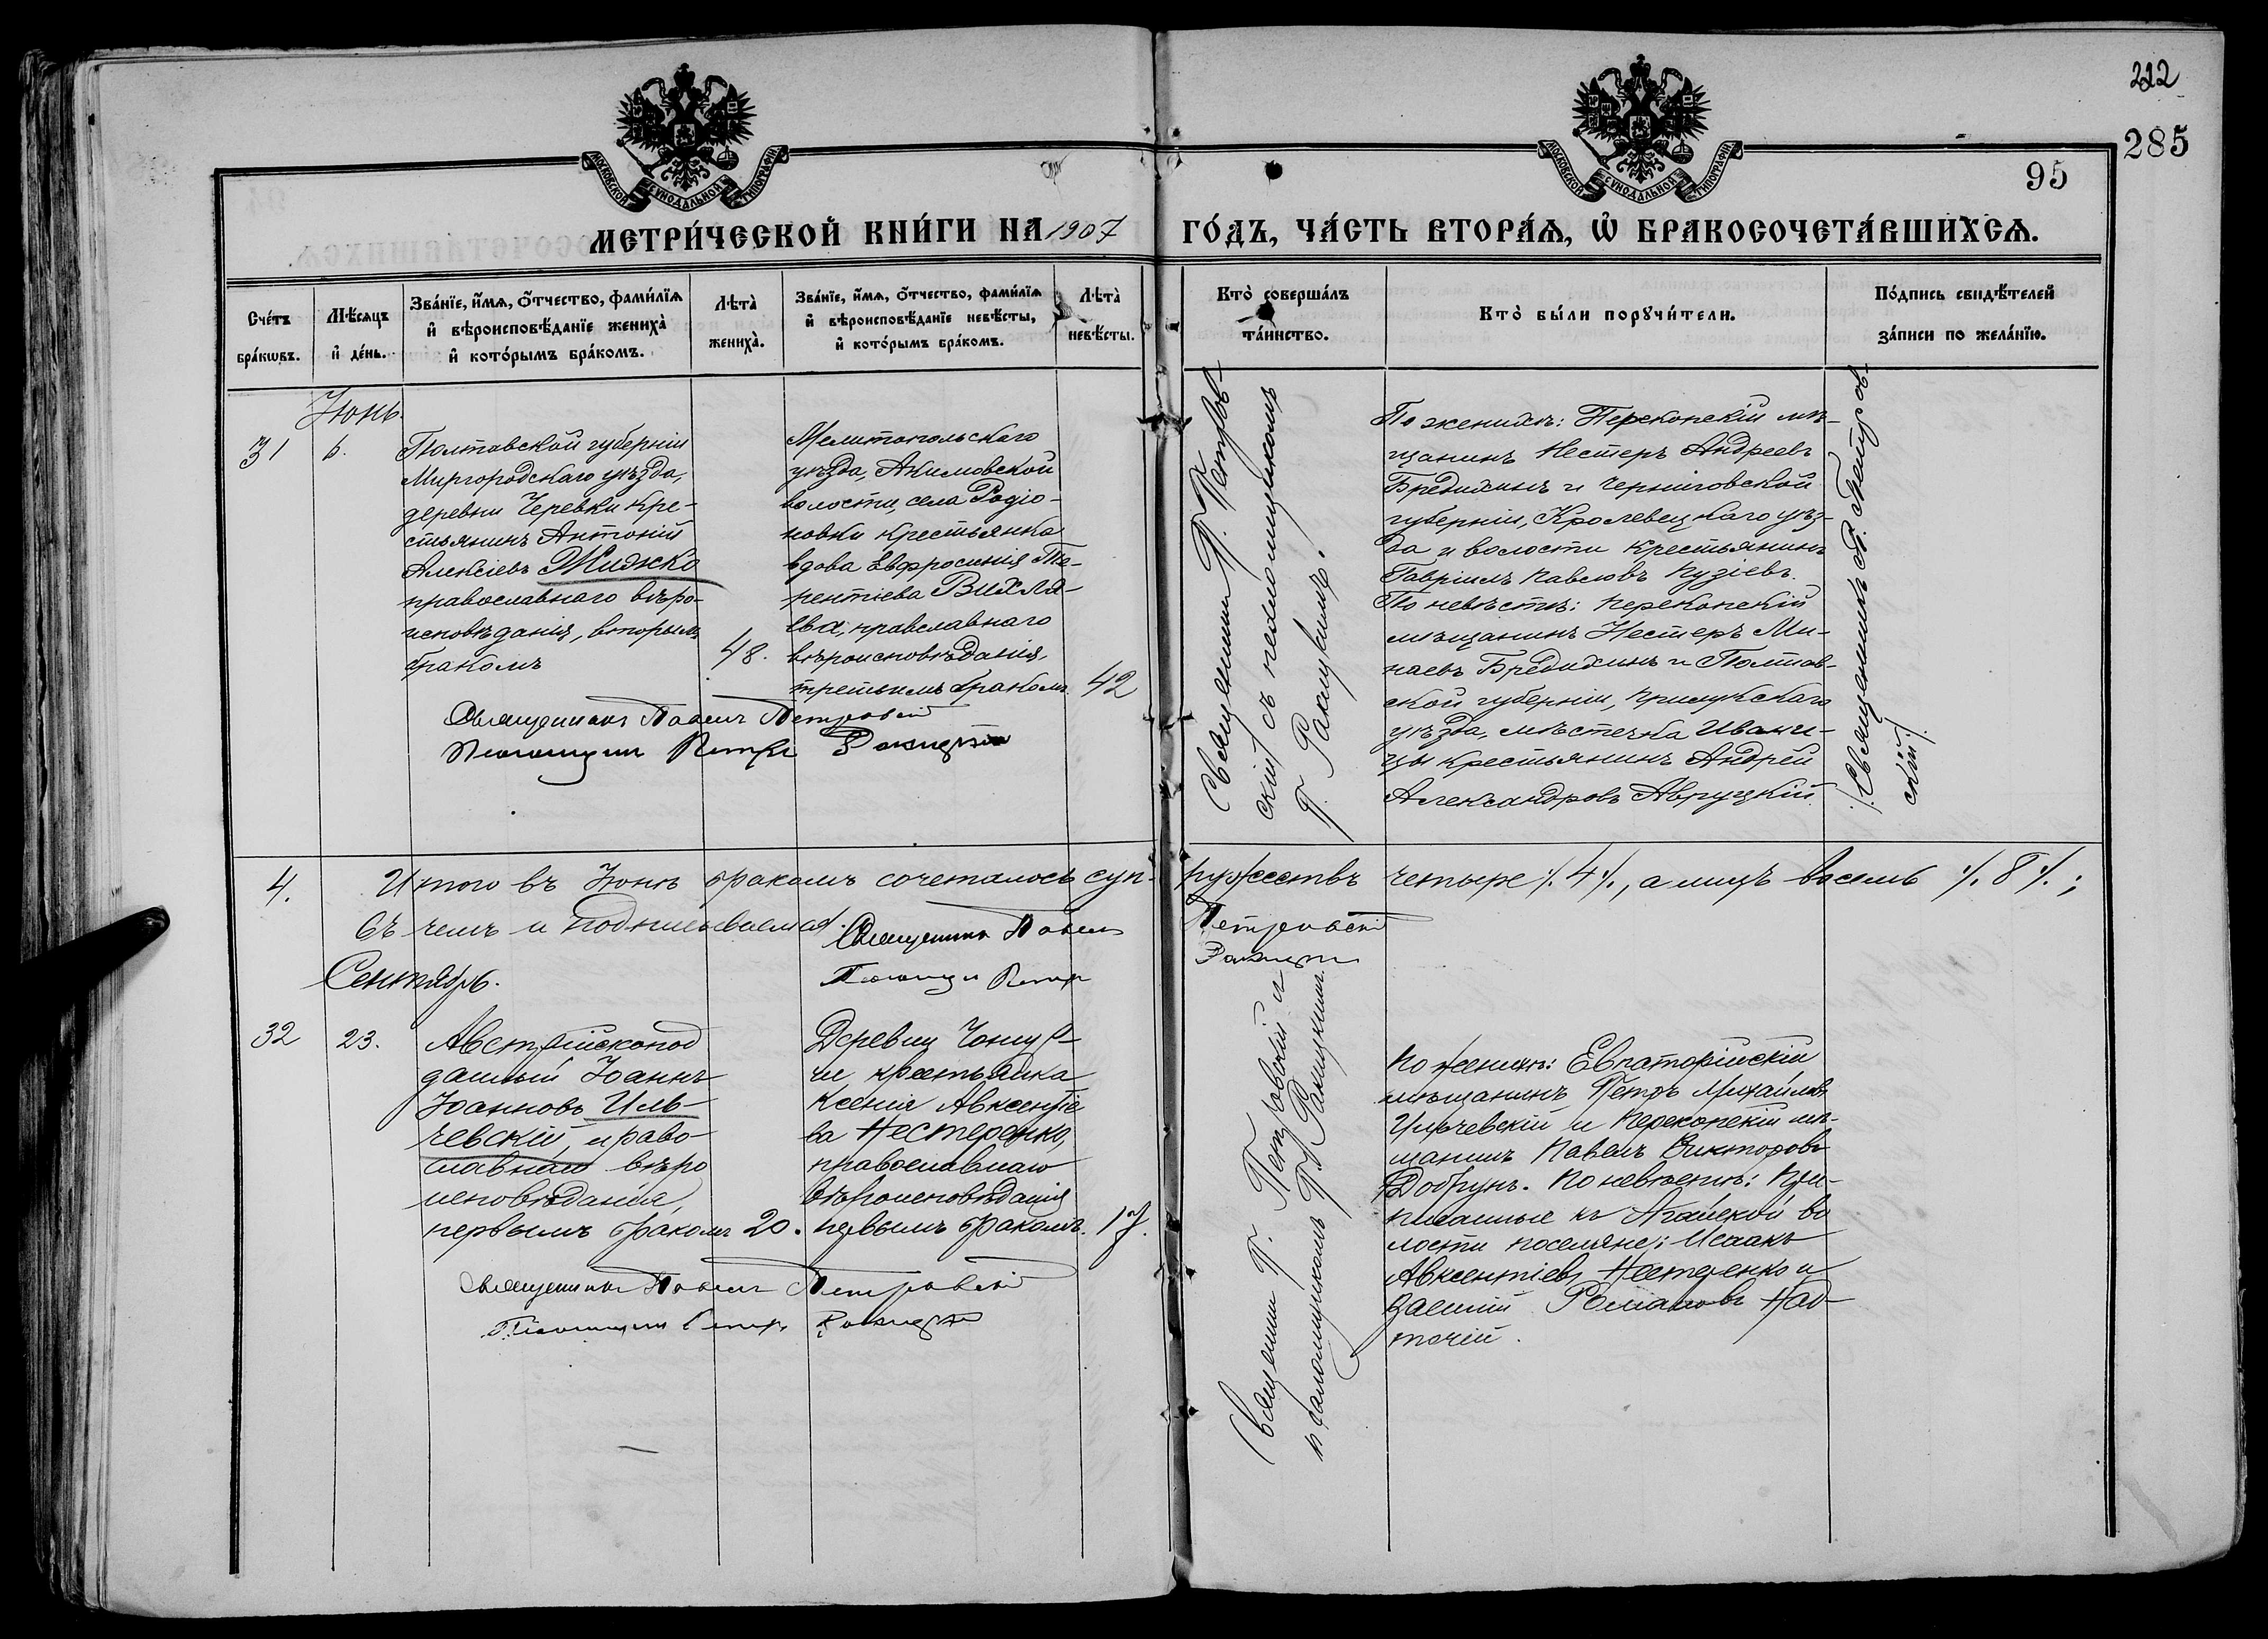 212
285
95
МОСКОВСКОЙ СѴНОДАЛЬНОЙ ТИПОГРАФІИ
МОСКОВСКОЙ СѴНОДАЛЬНОЙ ТИПОГРАФІИ
МЕТРИ́ЧЕСКОЙ КНИ́ГИ НА 1907 ГО́ДЪ, ЧА́СТЬ ВТОРА́Ѧ, Ѽ БРАКОСОЧЕТА́ВШИХСѦ.
Сче́тъ бра́кѡвъ.
Мѣ́сяцъ и҆ де́нь.
Зва́нїе, и҆́мѧ, ѻ҆́тчество, фами́лїѧ
и҆ вѣроисповѣ́данїе жениха̀
и҆ кото́рымъ бра́комъ.
Лѣта̀ жениха̀.
Зва́нїе, и҆́мѧ, ѻ҆́тчество, фами́лїѧ
и҆ вѣроисповѣ́данїе невѣ́сты,
и҆ кото́рымъ бра́комъ.
Лѣта̀ невѣ́сты.
Кто̀ соверша́лъ
та́инство.
Кто̀ бы́ли порꙋчи́тели.
По́дпись свидѣ́телей
за́писи по жела́нїю.
Іюнь.
31
6.
Полтавской губерніи
Миргородскаго уѣзда,
деревни Черевки кре-
стьянинъ Антоній
Алексіевъ Жидко
православнаго вѣро-
исповѣданія, вторымъ
бракомъ
48.
Мелитопольскаго
уѣзда, Акимовской
волости, села Родіо-
новки крестьянка
вдова Евфросинія Те-
рентіева Вихля-
ева, православнаго
вѣроисповѣданія,
третьимъ бракомъ.
42
Священникъ Павелъ Петровскій
Псаломщикъ Петръ Ракицкій
Священникъ П. Петров-
скій съ псаломщикомъ
П. Ракицкимъ.
По женихѣ: Перекопскій мѣ-
щанинъ Нестеръ Андреевъ
Бредихинъ и Черниговской
губерніи, Кролевецкаго уѣз-
да и волости крестьянинъ
Гавріилъ Павловъ Пузіевъ.
По невѣстѣ: Перекопскій
мѣщанинъ Нестеръ Ми-
наевъ Бредихинъ и Полтав-
ской губерніи, Прилукскаго
уѣзда, мѣстечка Ивани-
цы крестьянинъ Андрей
Александровъ Авруцкій.
/Священникъ П. Петров-
скій/.
4.
Итого въ Іюнѣ бракомъ сочеталось суп-
ружествъ четыре ./. 4 ./., а лицъ восемь ./. 8 ./.;
въ чемъ и подписываемся.
Священникъ Павелъ Петровскій
Псаломщикъ Петръ Ракицкій
Сентябрь.
32
23.
Австрійскопод
данный Іоаннъ
Іоанновъ Иль-
чевскій, право-
славнаго вѣро
исповѣданія,
первымъ бракомъ
20.
Деревни
крестьянка
Ксенія Авксентіе
ва Нестеренко,
православнаго
вѣроисповѣданія
первымъ бракомъ.
17.
Священникъ Павелъ Петровскій
Псаломщикъ Петръ Ракицкій
Священникъ П. Петровскій и
псаломщикомъ П. Ракицкимъ.
По женихѣ: Евпаторійскій
мѣщанинъ Петръ Михайловъ
Ильчевскій и Перекопскій мѣ-
щанинъ Павелъ Викторовъ
Добрунъ. По невѣстѣ: При-
писанные къ Агайской во
лости поселяне: Исаакъ
Авксентіевъ Нестеренко и
Романовъ Над-
точій.